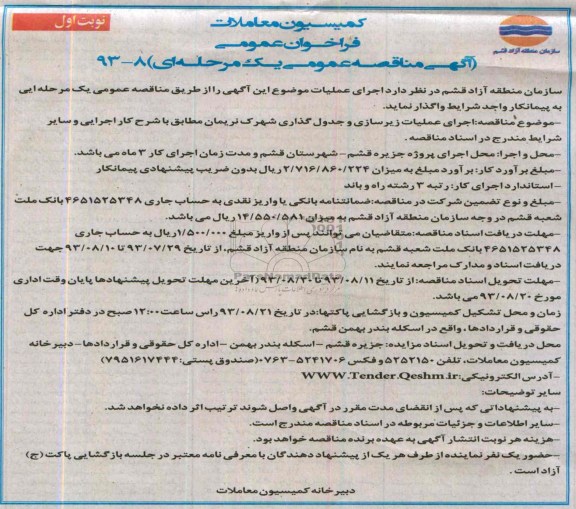 کمیسیون معاملات
نوبت اول
فراخوان عمومی
سازمان منطقه آزاد قشم
(آگهی مناقصه عمومی یک مرحله‌ای) ۸-۹۳
سازمان منطقه آزاد قشم در نظر دارد اجرای عملیات موضوع این آگهی را از طریق مناقصه عمومی یک مرحله ایی
به پیمانکار واجد شرایط واگذار نماید.
-موضوع مناقصه:اجرای عملیات زیرسازی و جدول گذاری شهرک نریمان مطابق با شرح کار اجرایی و سایر
شرایط مندرج در اسناد مناقصه .
-محل و اجرا: محل اجرای پروژه جزیره قشم - شهرستان قشم و مدت زمان اجرای کار ۳ ماه می باشد.
-مبلغ برآورد کار: برآورد مبلغ به میزان ۲/۷۱۶/۸۶۰/۲۲۴ ریال بدون ضریب پیشنهادی پیمانکار
-استاندارد اجرای کار: رتبه ۳ رشته راه و باند
-مبلغ و نوع تضمین شرکت در مناقصه:ضمانتنامه بانکی یا واریز نقدی به حساب جاری ۴۶۵۱۵۲۵۳۴۸ بانک ملت
شعبه قشم در وجه سازمان منطقه آزاد قشم به میزان ۱۴/۵۵۰/۵۸۱ ریال می باشد.
-مهلت دریافت اسناد مناقصه:متقاضیان می توانند پس از واریز مبلغ ۱/۵۰۰/۰۰۰ریال به حساب جاری
۴۶۵۱۵۲۵۳۴۸ بانک ملت شعبه قشم به نام سازمان منطقه آزاد قشم، از تاریخ ۹۳/۰۷/۲۹ تا ۹۳/۰۸/۱۰ جهت
دریافت اسناد و مدارک مراجعه نمایند.
-مهلت تحویل اسناد مناقصه:از تاریخ ۹۳/۰۸/۱۱ تا ۹۳/۰۸/۲۰(آخرین مهلت تحویل پیشنهادها پایان وقت اداری
مورخ ۹۳/۰۸/۲۰ می باشد.
زمان و محل تشکیل کمیسیون و بازگشایی پاکتها:در تاریخ ۹۳/۰۸/۲۱ راس ساعت ۱۲:۰۰صبح در دفتر اداره کل
حقوقی و قراردادها، واقع در اسکله بندر بهمن قشم.
محل دریافت و تحویل اسناد مزایده: جزیره قشم - اسکله بندر بهمن -اداره کل حقوقی و قراردادها- دبیرخانه
کمیسیون معاملات، تلفن ۵۲۵۲۱۵۰ و فکس ۵۲۴۱۷۰۶-۰۷۶۳ (صندوق پستی: ۷۹۵۱۶۱۷۴۴۴)
-آدرس الکترونیکی:WWW.Tender.Qeshm.ir
سایر توضیحات:
-به پیشنهاداتی که پس از انقضای مدت مقرر در آگهی واصل شوند ترتیب اثر داده نخواهد شد.
-سایر اطلاعات و جزئیات مربوطه در اسناد مناقصه مندرج است.
-هزینه هر نوبت انتشار آگهی به عهده برنده مناقصه خواهد بود.
-حضور یک نفر نماینده از طرف هر یک از پیشنهاد دهندگان با معرفی نامه معتبر در جلسه بازگشایی پاکت (ج)
آزاد است .
دبیرخانه کمیسیون معاملات